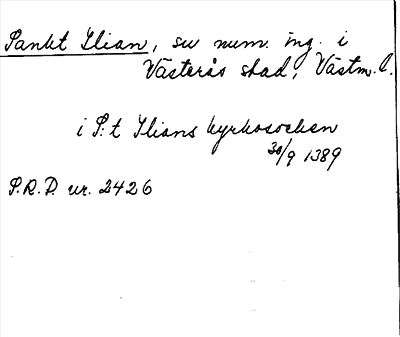 Sankt Ilian, su num. ing. i
Västerås stad, Västm. l.
i S:t Ilians kyrkosocken
30/9 1389
S.R.P. nr. 2426